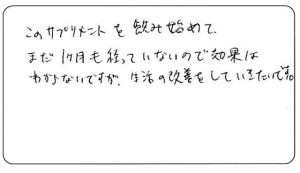 このサプリメントを飲み始めて、
まだ1ヶ月も経っていないので効果は
わからないですが、生活の改善をしていきたいです。